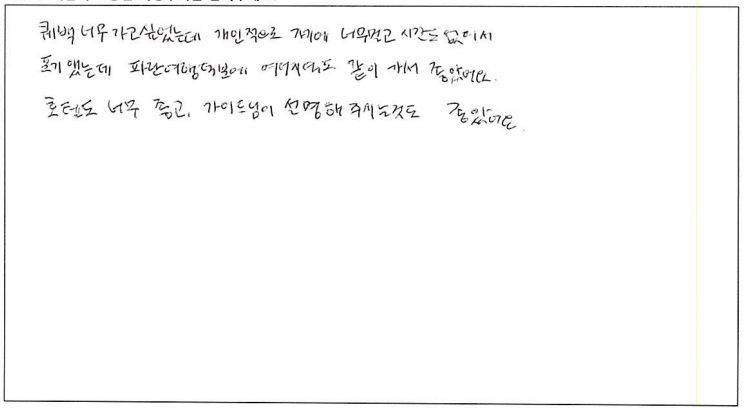 퀘백 너무 가고싶었는데 개인적으로 너무멀고 시간도 없어서
포기 했는데 파란여행덕분에 여러지역도 같이 가서 좋았어요.
호텔도 너무 좋고, 가이드님이 설명해 주시는것도 좋았어요.